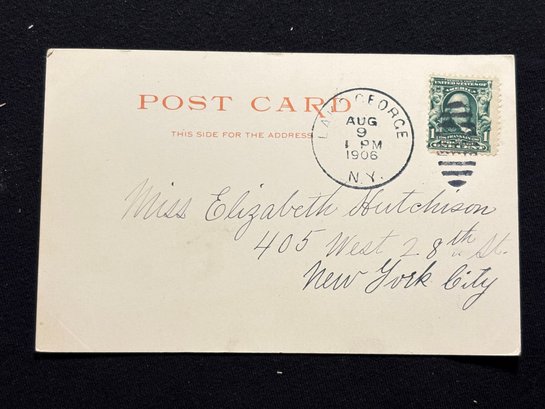 POST CARD
THIS SIDE FOR THE ADDRESS
LAKE GEORGE
AUG
9
1 PM
1906
N.Y.
UNITED STATES OF
1
Miss Elizabeth Hutchison
405 West 28th St.
New York City